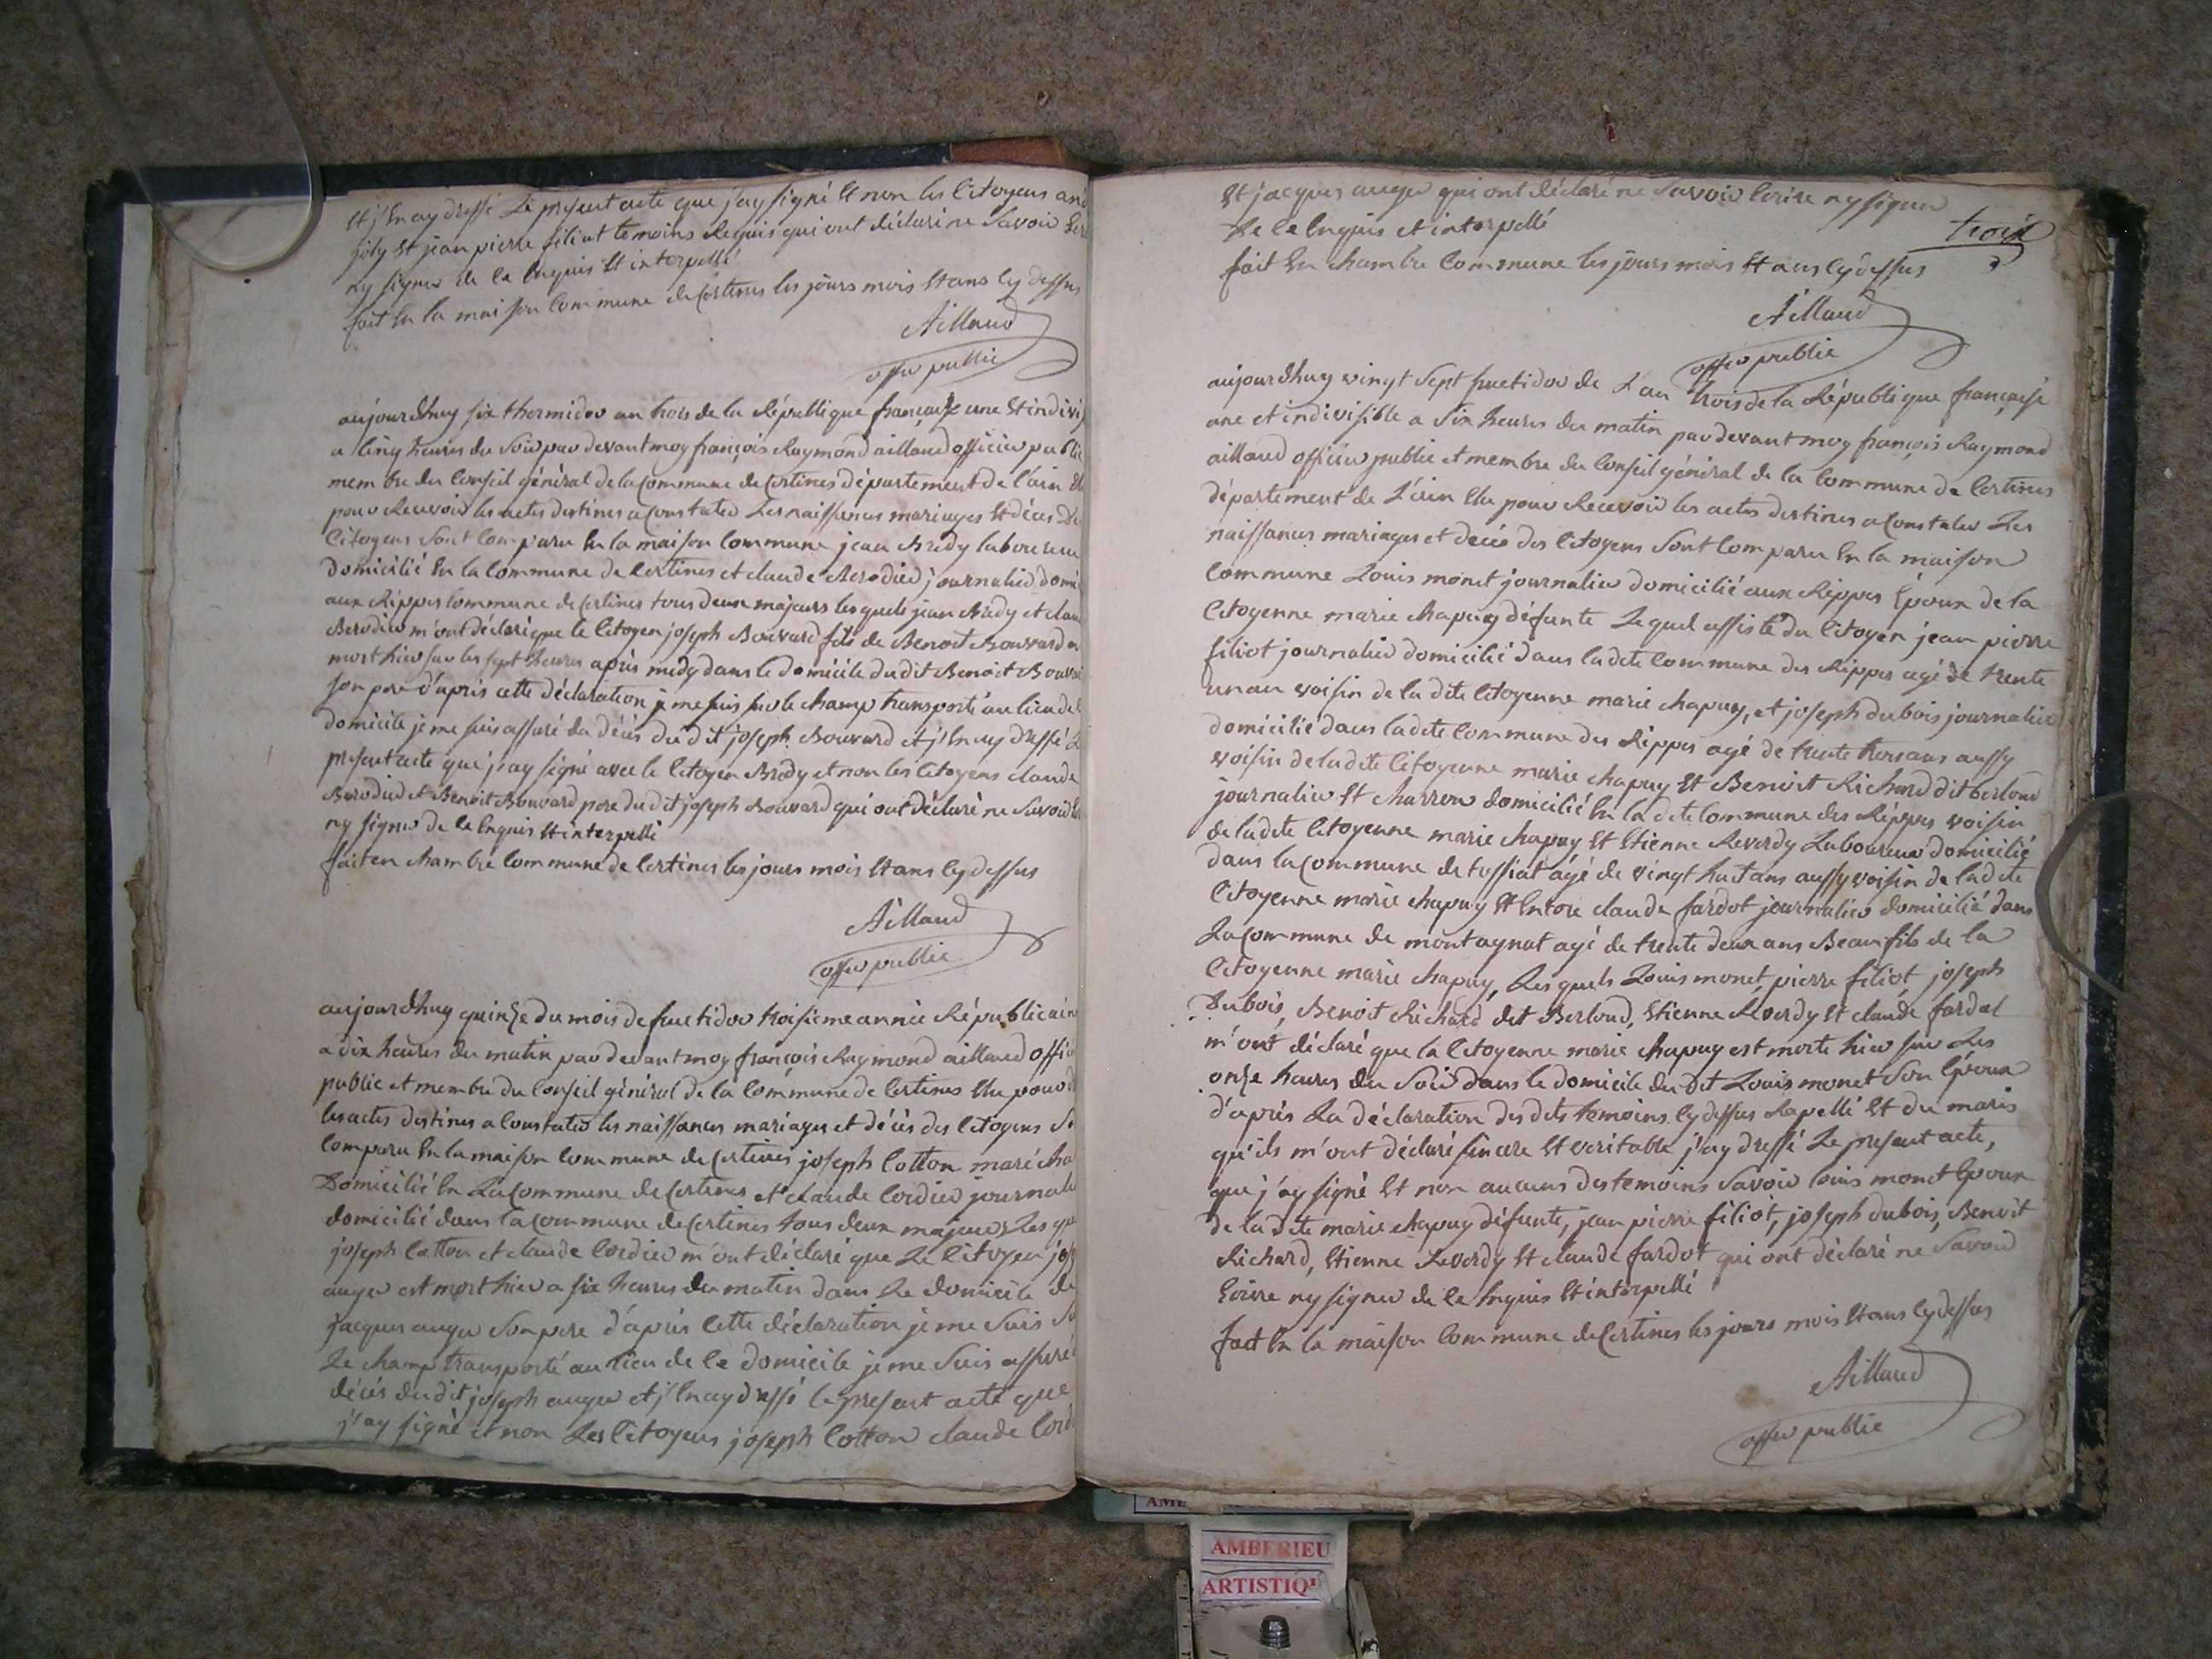 Et j'En ay dressé Le present acte que j'ay signé Et non les Citoyens
joly Et jean pierre filiot temoins Requis qui ont déclaré ne Savoir
ny signer de Ce Enquis Et interpellé
fait En la maison Commune de Certines les jours mois Et ans Cy dessus
Aillaud
offier public
aujourdhuy six thermidor an trois de la République française une Et indivi
a Cinq heures du Soir par devant moy françois Raymond aillaud officier public
membre du Conseil général de la Commune de Certines département de l'ain
pour Recevoir les actes destines a Constater Les naissances mariages Et déces
Citoyens Sont Comparu En la maison Commune jean Bredy laboureur
Domicilié En la Commune de Certines et claude Berodier journalier domi
aux Rippes Commune de Certines tous deux majeurs lesquels jean Bredy et clau
Berodier m'ont déclaré que le Citoyen joseph Bouvard fils de Benoit Bouvard
mort hier sur les sept heures après midy dans le domicile du dit Benoit Bouva
son pere d'après cette déclaration je me suis sur le champ transporté au lieu de
domicile je me suis assuré du déces du dit joseph Bouvard et j'En ay dressé
present acte que j'ay signé avec le Citoyen Bredy et non les Citoyens claude
Berodier et Benoit Bouvard pere du dit joseph Bouvard qui ont déclaré ne Savoir
ny signer de Ce Enquis Et interpellé
fait en chambre Commune de Certines les jours mois Et ans Cy dessus
Aillaud
offier public
aujourdhuy quinze du mois de fructidor troisieme année Républicain
a dix heures du matin par devant moy françois Raymond aillaud offi
public et membre du Conseil général de la Commune de Certines Elu pour
les actes destines a Constater les naissances mariages et déces des Citoyens
Comparu En la maison Commune de Certines joseph Cotton marécha
Domicilié En La Commune de Certines et claude Cordier journali
domicilié dans la Commune de Certines tous deux majeurs Les
joseph Cotton et claude Cordier m'ont déclaré que Le Citoyen jos
auger est mort hier a six heures du matin dans Le domicile de
jacques auger Son pere d'après Cette déclaration je me Suis
Le champ transporté au lieu de Ce domicile je me Suis assuré
déces du dit joseph auger et j'En ay dressé le present acte que
j'ay signé et non Les Citoyens joseph Cotton claude Cord
Et jacques auger qui ont déclaré ne Savoir Ecrire ny signer
De Ce Enquis et interpellé
trois
fait En chambre Commune les jours mois Et ans Cy dessus
Aillaud
offier public
aujourdhuy vingt Sept fructidor de L'an trois de la République française
une et indivisible a Six heures du matin par devant moy françois Raymond
aillaud officier public et membre du Conseil général de la Commune de Certines
département de L'ain Elu pour Recevoir les actes destines a Constater Les
naissances mariages et déces des Citoyens Sont Comparu En la maison
Commune Louis monet journalier domicilié aux Rippes Epoux de la
Citoyenne marie chapuy défunte Lequel assisté du Citoyen jean pierre
filiot journalier domicilié dans la dite Commune des Rippes agé de trente
un an voisin de la dite Citoyenne marie chapuy, et joseph dubois journalier
domicilié dans la dite Commune des Rippes agé de trente trois ans aussy
voisin de la dite Citoyenne marie chapuy Et Benoit Richard dit berloud
journalier Et charron domicilié En la dite Commune des Rippes voisin
de la dite Citoyenne marie chapuy Et Etienne Reverdy Laboureur domicilié
dans la Commune de tossiat agé de vingt huit ans aussy voisin de la dite
Citoyenne marie chapuy Et Encore claude fardot journalier domicilié dans
La Commune de montagnat agé de trente deux ans Beau fils de la
Citoyenne marie chapuy, Les quels Louis monet, pierre filiot, joseph
Dubois, Benoit Richard dit Berloud, Etienne Reverdy Et claude fardot
m'ont déclaré que la Citoyenne marie chapuy est morte hier sur Les
onze heures du Soir dans le domicile du dit Louis monet Son Epoux
d'après La déclaration des dits temoins Cy dessus Rapellé Et du maris
qu'ils m'ont déclaré sincere Et veritable j'ay dressé Le present acte,
que j'ay signé Et non aucuns des temoins Savoir Louis monet Epoux
de la dite marie chapuy défunte, jean pierre filiot, joseph dubois, Benoit
Richard, Etienne Reverdy Et claude fardot qui ont déclaré ne Savoir
Ecrire ny signer de Ce Enquis Et interpellé
fait En la maison Commune de Certines les jours mois Et ans Cy dessus
Aillaud
offier public
AMBERIEU
ARTISTIQ